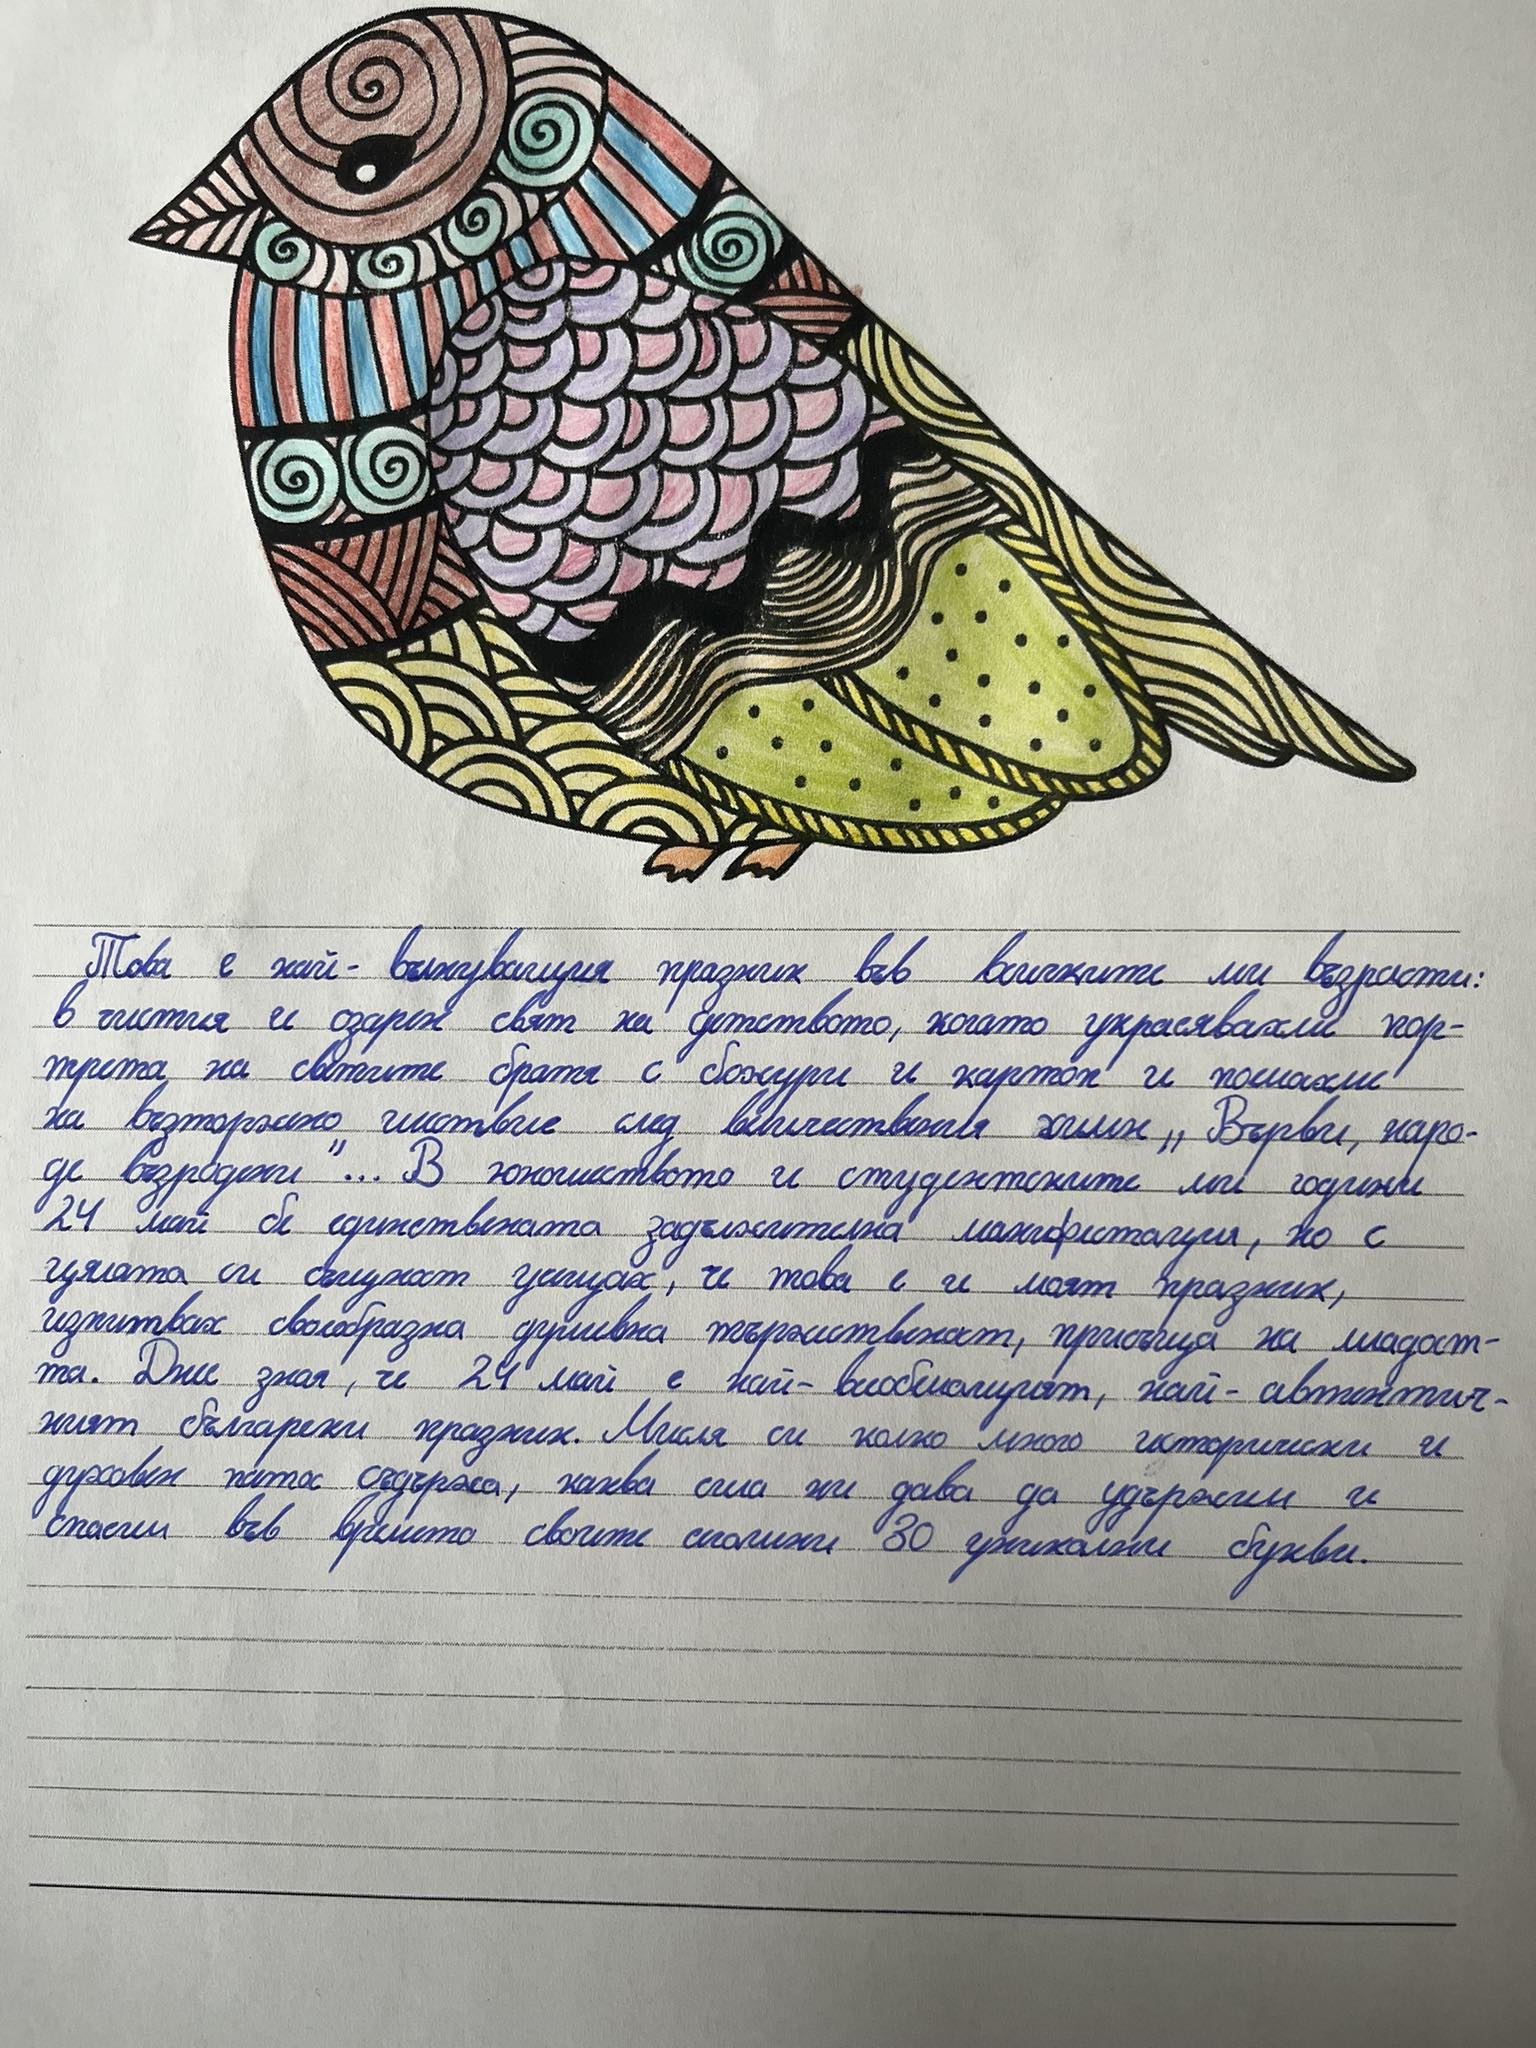 Това е най-вълнуващия празник във всичките ми възрасти:
в чистия и озарен свят на детството, когато украсявахме пор-
трета на светите братя с божури и картон и пошахме
на възторжено шествие след величествения химн „Върви, наро-
де възродени"... В юношеството и студентските ми години
24 май бе единствената задължителна манифестация, но с
цялата си същност усещах, че това е и моят празник,
изпитвах своеобразна душевна тържественост, присъща на младост-
та. Днес зная, че 24 май е най-всеобемащият, най-автентич-
ният български празник. Мисля си колко много исторически и
духовен патос съдържа, каква сила ни дава да удържим и
спасим във времето своите столини 30 уникални букви.